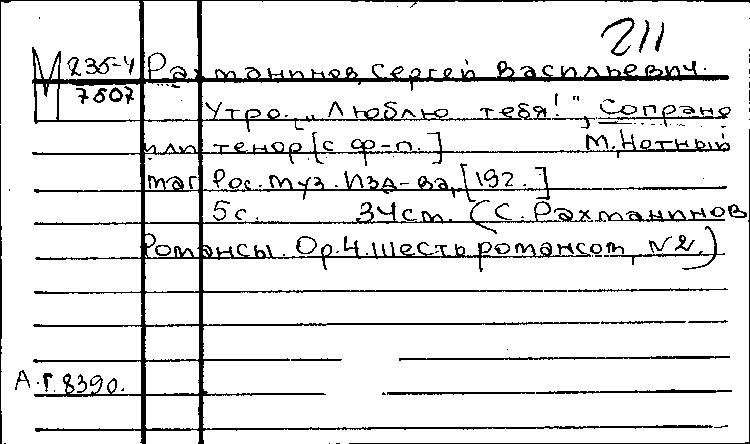 211
М 235-4 Рахманинов, Сергей Васильевич.
7507
Утро. [„Люблю тебя!", Сопрано
или тенор [с ф-п.] М, Нотный
маг. Рос. муз. изд-ва, [192. ]
5 с. 34 см. (С. Рахманинов
Романсы. Op. 4. Шесть романсов, №2.)
А.Г. 8390.